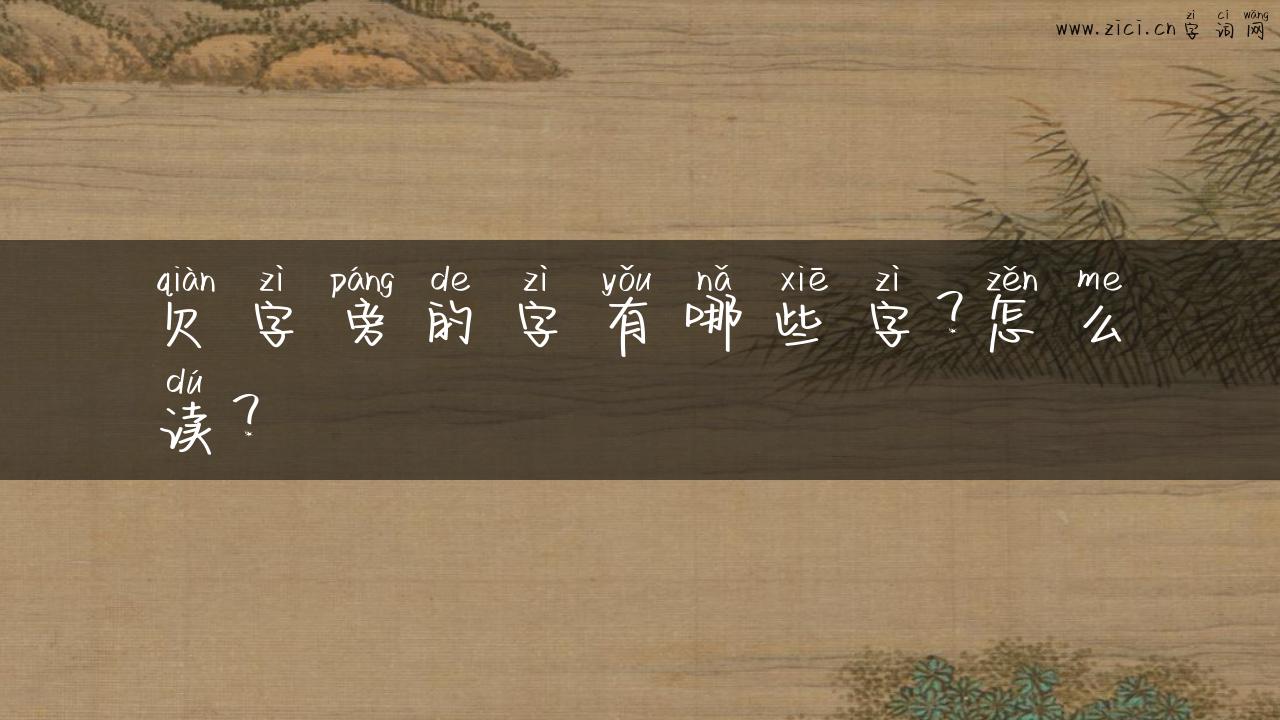 zì cí wǎng
www.zici.cn 字 词 网
qiàn zì páng de zì yǒu nǎ xiē zì zěn me
欠 字 旁 的 字 有 哪 些 字 ? 怎 么
dú
读 ?